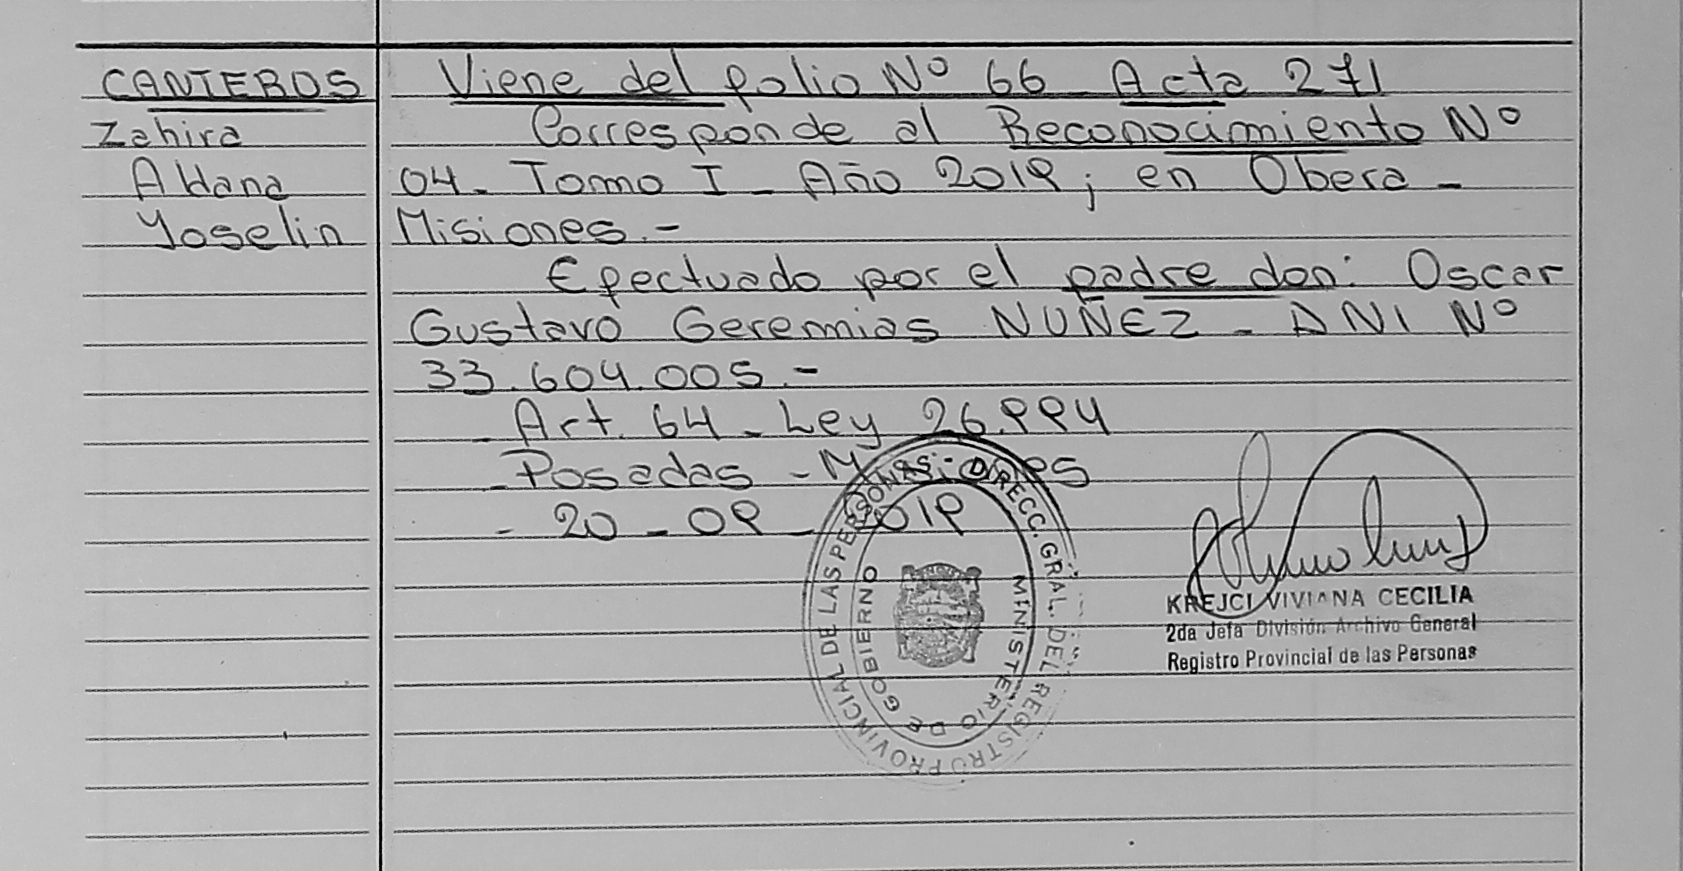 CANTEROS
Zahira
Aldana
Yoselin
Viene del folio Nº 66 - Acta 271
Corresponde al Reconocimiento Nº
04 - Tomo I - Año 2019; en Obera -
Misiones.-
Efectuado por el padre don: Oscar
Gustavo Geremias NUÑEZ - DNI Nº
33.604.005.-
- Art. 64 - Ley 26.994
- Posadas - Misiones
- 20 - 09 - 2019
REGISTRO PROVINCIAL DE LAS PERSONAS - DIRECC. GRAL. DEL
MINISTERIO DE GOBIERNO
KREJCI VIVIANA CECILIA
2da Jefa División Archivo General
Registro Provincial de las Personas